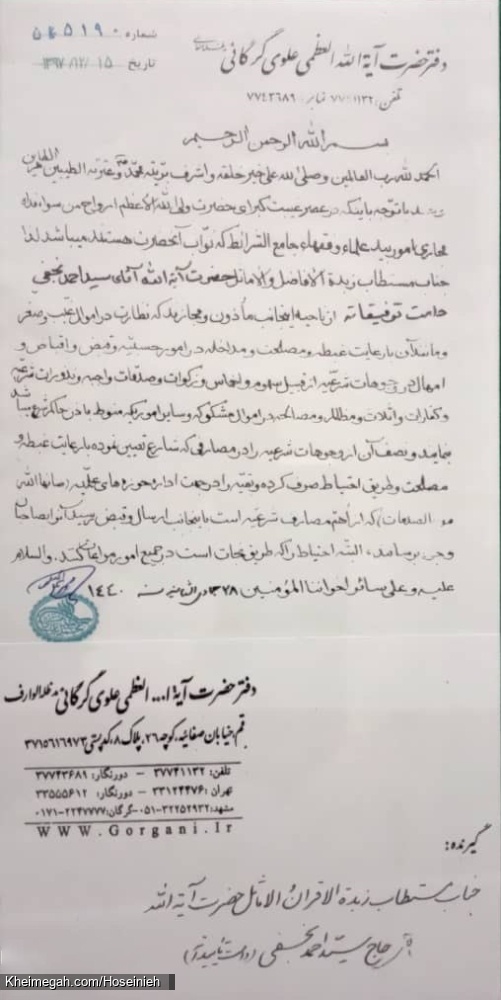 شماره ۵۱۹۰
تاریخ ۱۳۹۷/۱۲/۱۵
دفتر حضرت آیة الله العظمی علوی گرگانی
تلفن: ۷۷۴۱۱۳۲ نمابر: ۷۷۴۳۶۸۹
بسم الله الرحمن الرحیم
الحمد لله رب العالمین و صلی الله علی خیر خلقه و اشرف بریته محمد و عترته الطیبین الطاهرین
و بعد با توجه باینکه در عصر غیبت کبرای حضرت ولی الله الاعظم ارواح من سواه فداه
مجاری امور بید علماء و فقهاء جامع الشرائط که نواب آنحضرت هستند میباشد لذا
جناب مستطاب زبدة الافاضل و الاماثل حضرت آیة الله آقای سید احمد نجفی
دامت توفیقاته از ناحیه اینجانب مأذون و مجازند که نظارت در اموال غیب و صغر
و مانند آن با رعایت غبطه و مصلحت و مداخله در امور حسبیه و قبض و اقباض و
امهال در وجوهات شرعیه از قبیل سهوم و اخماس و زکوات و صدقات واجبه و نذورات شرعیه
و کفارات و اثلاث و مظالم و مصالحه در اموال مشکوکه و سایر اموریکه منوط باذن حاکم شرع میباشد
بنمایند و نصف آن از وجوهات شرعیه را در مصارفی که شارع تعیین نموده با رعایت غبطه و
مصلحت و طریق احتیاط صرف کرده و بقیه را در جهت اداره حوزه های علمیه (صانها الله
الصدمات) که از اهم مصارف شرعیه است باینجانب ارسال و قبض رسید آنرا بصاحبان
وجوه برسانند، البته احتیاط را که طریق نجات است در جمیع امور مراعات کند. والسلام
علیه و علی سائر اخواننا المؤمنین ۲۸ جمادی الثانیه سنه ۱۴۴۰
دفتر حضرت آیة ا... العظمی علوی گرگانی مد ظله الوارف
قم، خیابان صفائیه، کوچه ۲۶، پلاک ۸، کد پستی ۳۷۱۵۶۱۶۹۷۳
تلفن: ۳۷۷۴۱۱۳۲ - دورنگار: ۳۷۷۴۳۶۸۹
تهران: ۳۳۱۲۴۴۷۶ - دورنگار: ۳۳۵۵۵۶۱۲
مشهد: ۳۲۲۵۲۹۳۲-۰۵۱-گرگان: ۲۲۴۷۷۷۷-۰۱۷۱
WWW.Gorgani.Ir
گیرنده:
جناب مستطاب زبدة الاقران و الاماثل حضرت آیة الله
حاج سید احمد نجفی (دامت تاییداته)
Kheimegah.com/Hoseinieh